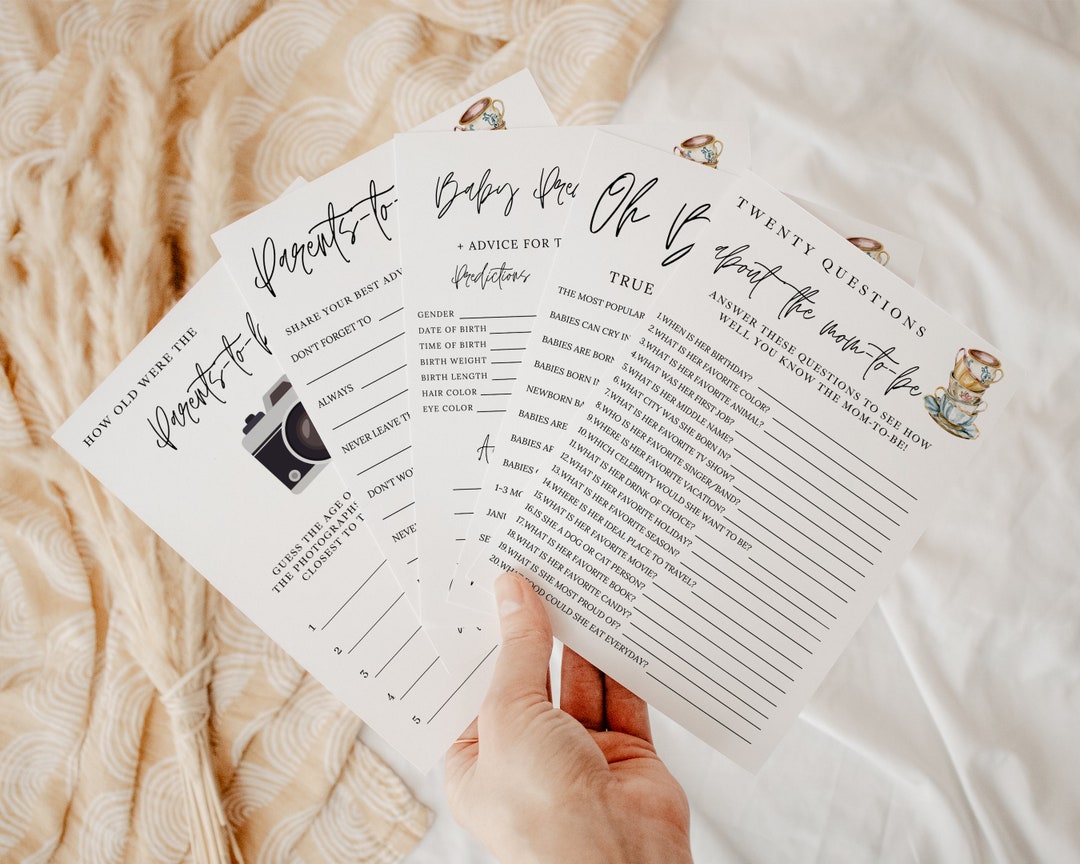 HOW OLD WERE THE
Parents-to-b
GUESS THE AGE O
THE PHOTOGRAPH
CLOSEST TO T
1
2
3
4
5
Parents-to-
SHARE YOUR BEST ADV
DON'T FORGET TO
ALWAYS
NEVER LEAVE TH
DON'T WO
NEVE
Baby Pre
+ ADVICE FOR T
Predictions
GENDER
DATE OF BIRTH
TIME OF BIRTH
BIRTH WEIGHT
BIRTH LENGTH
HAIR COLOR
EYE COLOR
A
Oh B
TRUE
THE MOST POPULAR
BABIES CAN CRY IN
BABIES ARE BORN
BABIES BORN I
NEWBORN BA
BABIES ARE
BABIES C
1-3 MO
JANU
SE
TWENTY QUESTIONS
about-the mom-to-be
ANSWER THESE QUESTIONS TO SEE HOW
WELL YOU KNOW THE MOM-TO-BE!
1.WHEN IS HER BIRTHDAY?
2.WHAT IS HER FAVORITE COLOR?
3.WHAT IS HER FAVORITE ANIMAL?
4.WHAT WAS HER FIRST JOB?
5.WHAT IS HER MIDDLE NAME?
6.WHAT CITY WAS SHE BORN IN?
7.WHAT IS HER FAVORITE TV SHOW?
8.WHO IS HER FAVORITE SINGER/BAND?
9.WHERE IS HER FAVORITE VACATION?
10.WHICH CELEBRITY WOULD SHE WANT TO BE?
11.WHAT IS HER DRINK OF CHOICE?
12.WHAT IS HER FAVORITE HOLIDAY?
13.WHAT IS HER FAVORITE SEASON?
14.WHERE IS HER IDEAL PLACE TO TRAVEL?
15.WHAT IS HER FAVORITE MOVIE?
16.IS SHE A DOG OR CAT PERSON?
17.WHAT IS HER FAVORITE BOOK?
18.WHAT IS HER FAVORITE CANDY?
19.WHAT IS SHE MOST PROUD OF?
20.WHAT FOOD COULD SHE EAT EVERYDAY?